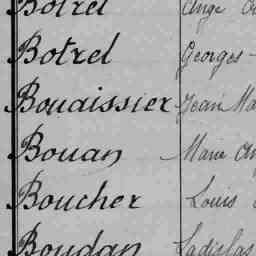 Botrel Ange
Botrel Georges
Bouaissier Jean Ma
Bouan Marie An
Boucher Louis
Boudan Ladislas